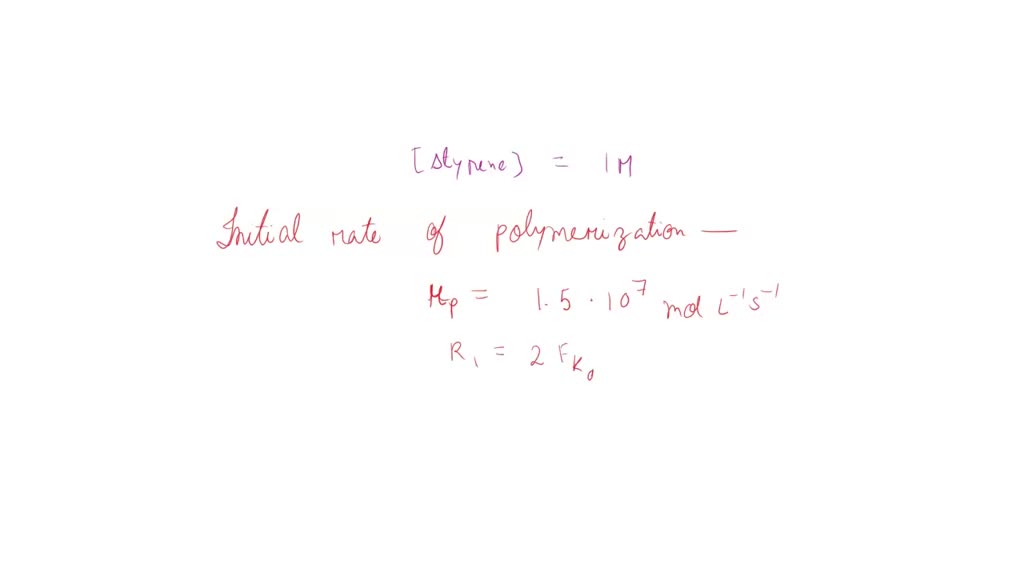 [styrene] = 1M
Initial rate of polymerization —
Rp = 1.5 · 10⁷ mol L⁻¹s⁻¹
R₁ = 2 F K₀